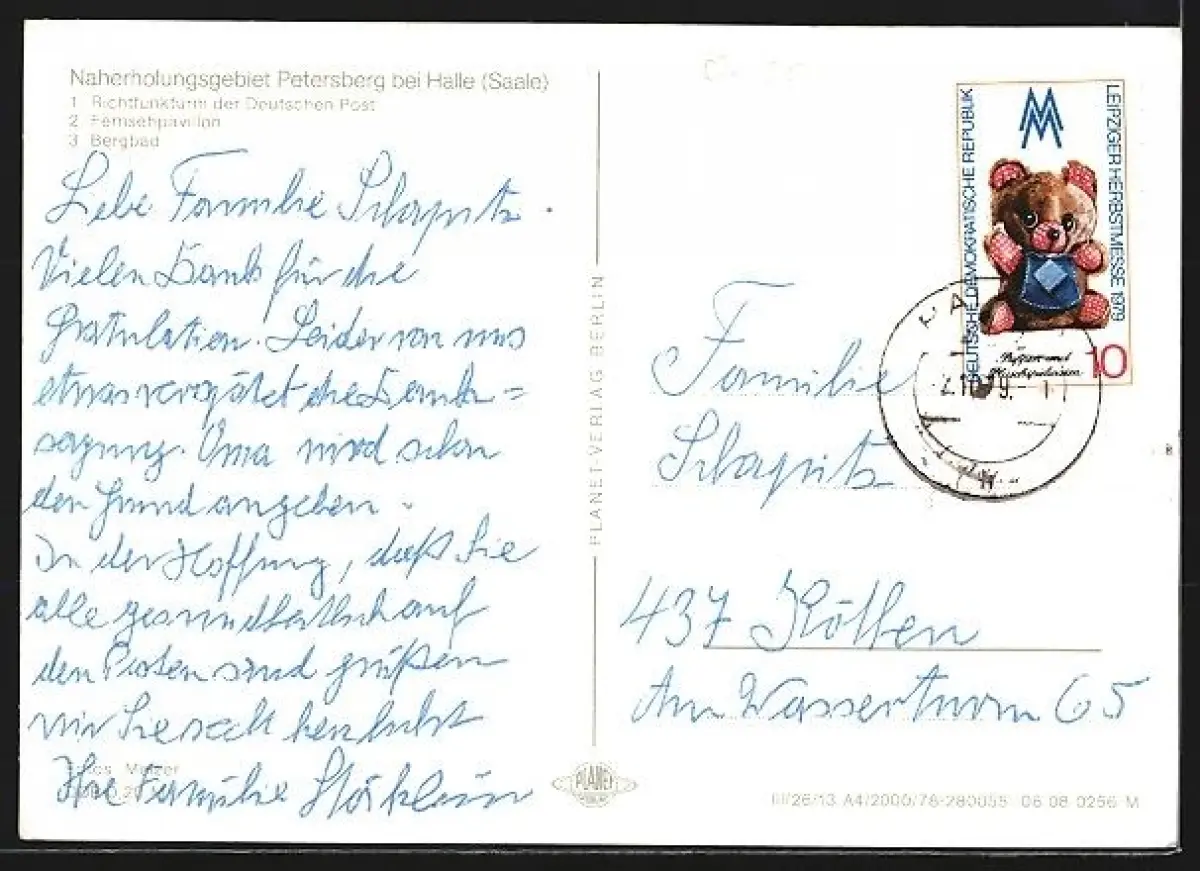 Naherholungsgebiet Petersberg bei Halle (Saale)
1 Richtfunkturm der Deutschen Post
2 Fernsehpavillon
3 Bergbad
Liebe Familie
Vielen Dank für die
Gratulation. Leider von uns
etwas verspätet die Dank=
sagung. Oma wird schon
den Grund angeben.
In der Hoffnung, daß Sie
alle gesundheitlich auf
den Posten sind grüßen
wir Sie recht herzlichst
Ihre Familie
Fotos: Melzer
PLANET-VERLAG BERLIN
PLANET
DEUTSCHE DEMOKRATISCHE REPUBLIK
MM
LEIPZIGER HERBSTMESSE 1979
10
Familie
437 Köthen
Am Wasserturm 65
III/26/13 A4/2000/78-280055 06 08 0256 M